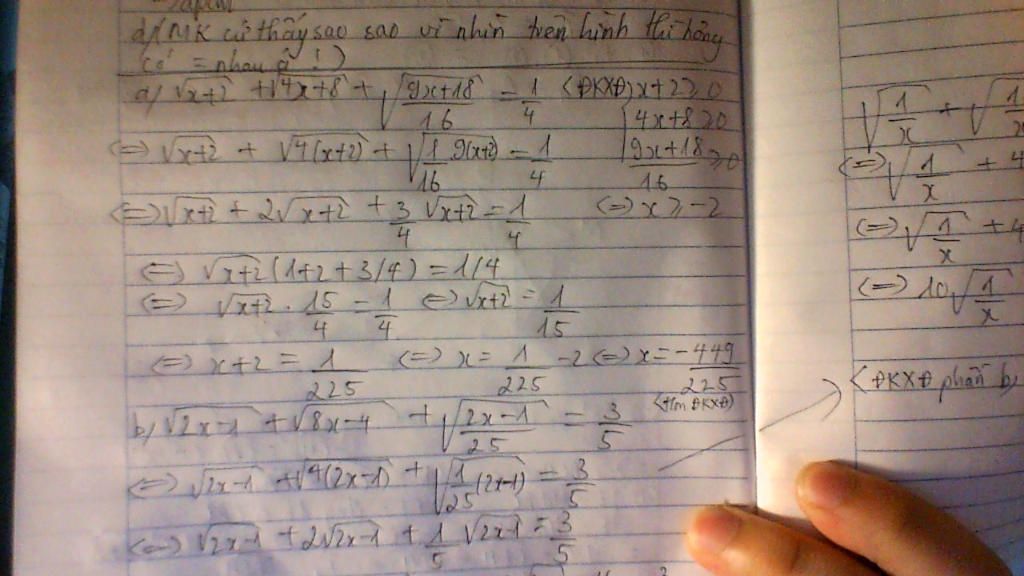 d/(MK cứ thấy sao sao vì nhìn trên hình thì hông
có = nhau ạ!)
a) √x+2 + √4x+8 + √(9x+18)/16 = 1/4 (ĐKXĐ) x+2≥0
4x+8≥0
(=) √x+2 + √4(x+2) + √1/16 9(x+2) = 1/4 9x+18/16 ≥0
(=) √x+2 + 2√x+2 + 3/4 √x+2 = 1/4 (=) x≥-2
(=) √x+2 (1+2+3/4) = 1/4
(=) √x+2 . 15/4 = 1/4 (=) √x+2 = 1/15
(=) x+2 = 1/225 (=) x = 1/225 -2 (=) x = -449/225
(t/m ĐKXĐ)
b) √2x-1 + √8x-4 + √(2x-1)/25 = 3/5
(=) √2x-1 + √4(2x-1) + √1/25 (2x-1) = 3/5
(=) √2x-1 + 2√2x-1 + 1/5 √2x-1 = 3/5
√1/x + √1
(=) √1/x + 4
(=) √1/x + 4
(=) 10√1/x
(ĐKXĐ phần b)